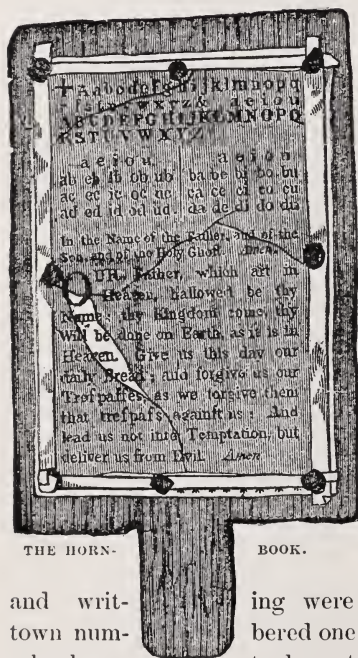 + A a b c d e f g h i j k l m n o p q
r s t u v w x y z & a e i o u
A B C D E F G H I J K L M N O P Q
R S T U V W X Y Z
a e i o u
a e i o u
ab eb ib ob ub
ba be bi bo bu
ac ec ic oc uc
ca ce ci co cu
ad ed id od ud
da de di do du
In the Name of the Father, and of the
Son, and of the Holy Ghost. Amen.
OUR Father, which art in
Heaven, hallowed be thy
Name; thy Kingdom come, thy
Will be done on Earth, as it is in
Heaven. Give us this day our
daily Bread; and forgive us our
Trespasses, as we forgive them
that trespass against us: And
lead us not into Temptation, but
deliver us from Evil. Amen
THE HORN-BOOK.
and writ- ing were
town num- bered one